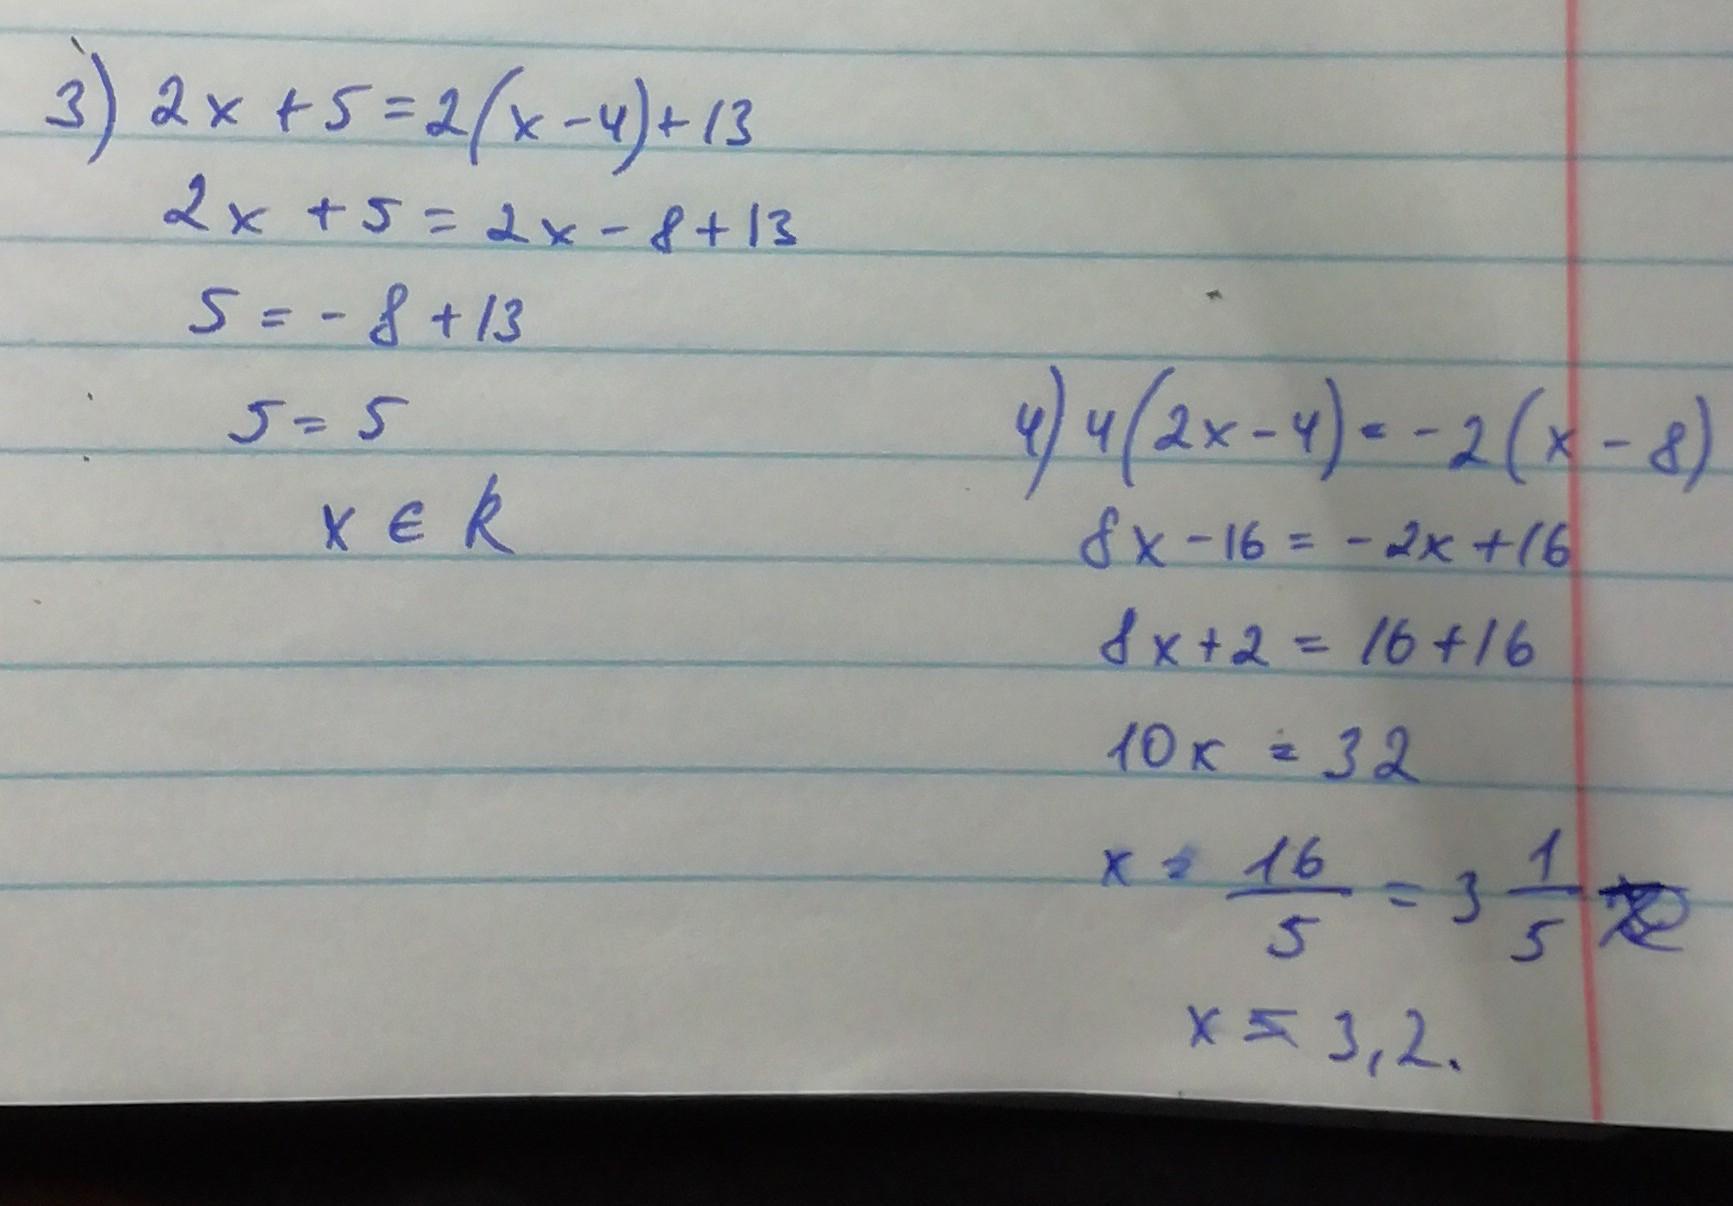 3) 2x + 5 = 2(x - 4) + 13
2x + 5 = 2x - 8 + 13
5 = - 8 + 13
5 = 5
x ∈ R
4) 4(2x - 4) = -2(x - 8)
8x - 16 = - 2x + 16
8x + 2 = 16 + 16
10x = 32
x = 16/5 = 3 1/5
x = 3,2.